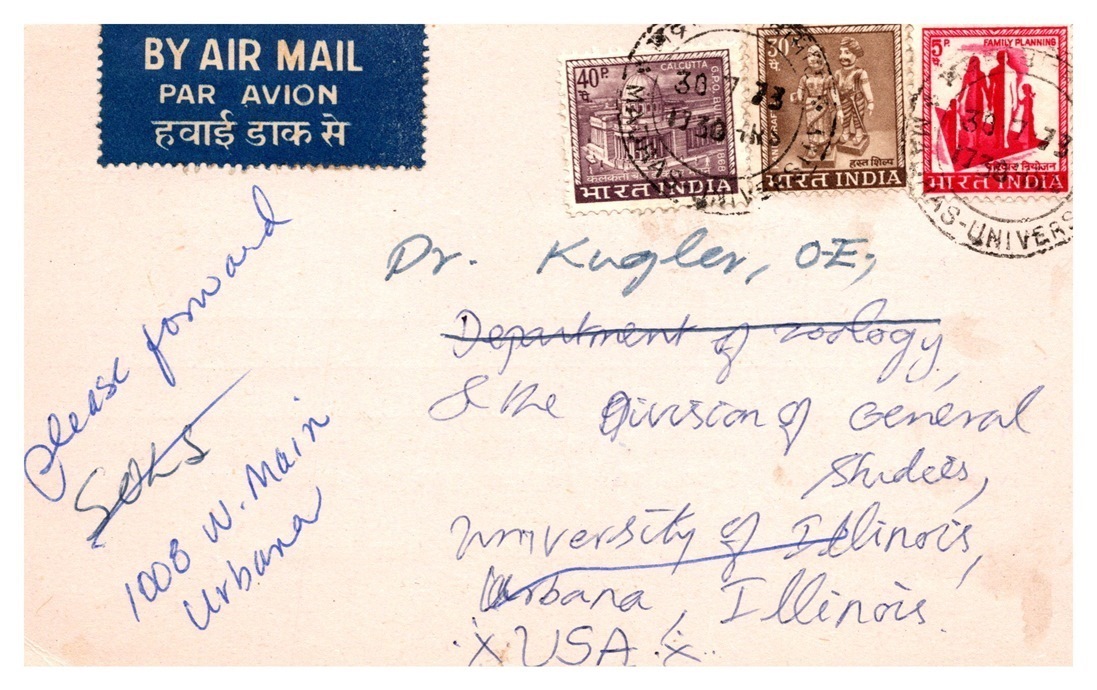 BY AIR MAIL
PAR AVION
हवाई डाक से
40 P.
पै
CALCUTTA
G.P.O. BU
1868
कलकत्ता
भारत INDIA
30 P
पै
हस्त शिल्प
भारत INDIA
5 P.
FAMILY PLANNING
परिवार नियोजन
भारत INDIA
30 7 73
1730 HRS
30 7 73
1730
AS-UNIVERS
Dr. Kugler, O.E,
Department of zoology,
& the Division of General
Studies,
University of Illinois,
Urbana, Illinois.
.X. USA .X.
please forward
1008 W. Main
Urbana